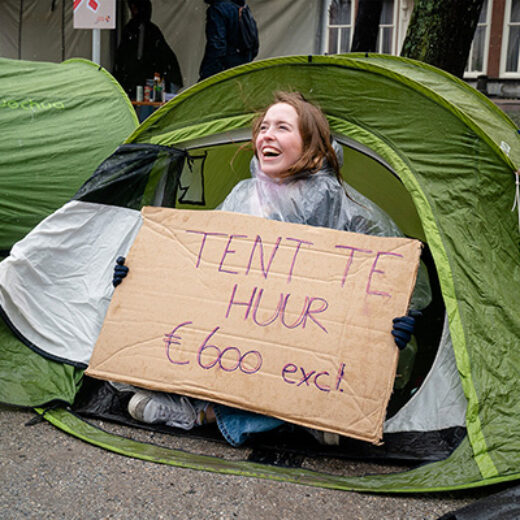 TENT TE
HUUR
€600 excl.